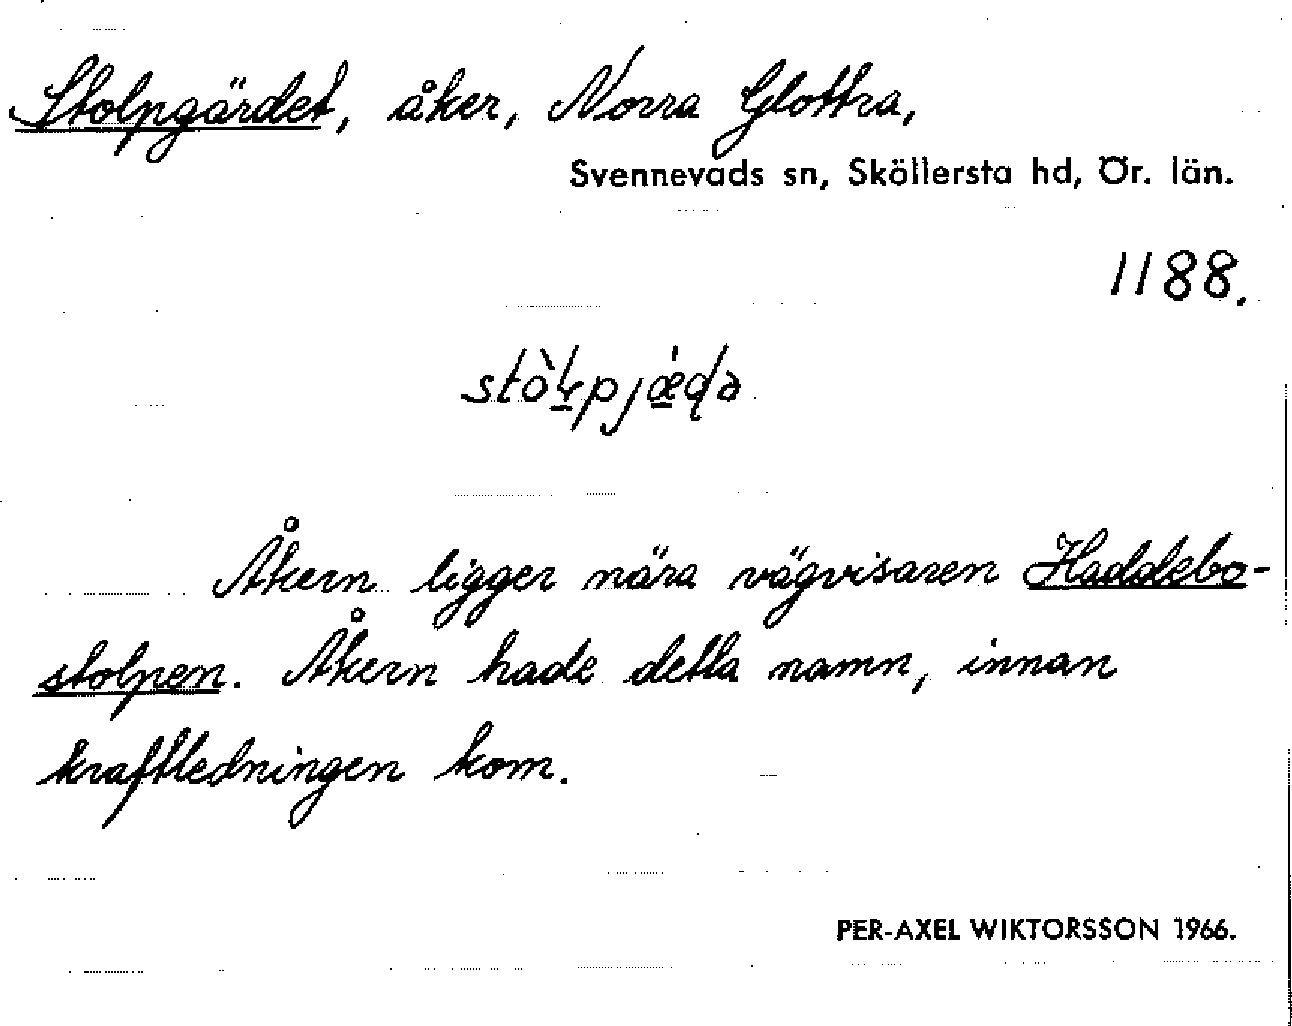 Stolpgärdet, åker, Norra Glottra,
Svennevads sn, Sköllersta hd, Ör. län.
1188.
Åkern ligger nära vägvisaren Haddebo-
stolpen. Åkern hade detta namn, innan
kraftledningen kom.
PER-AXEL WIKTORSSON 1966.